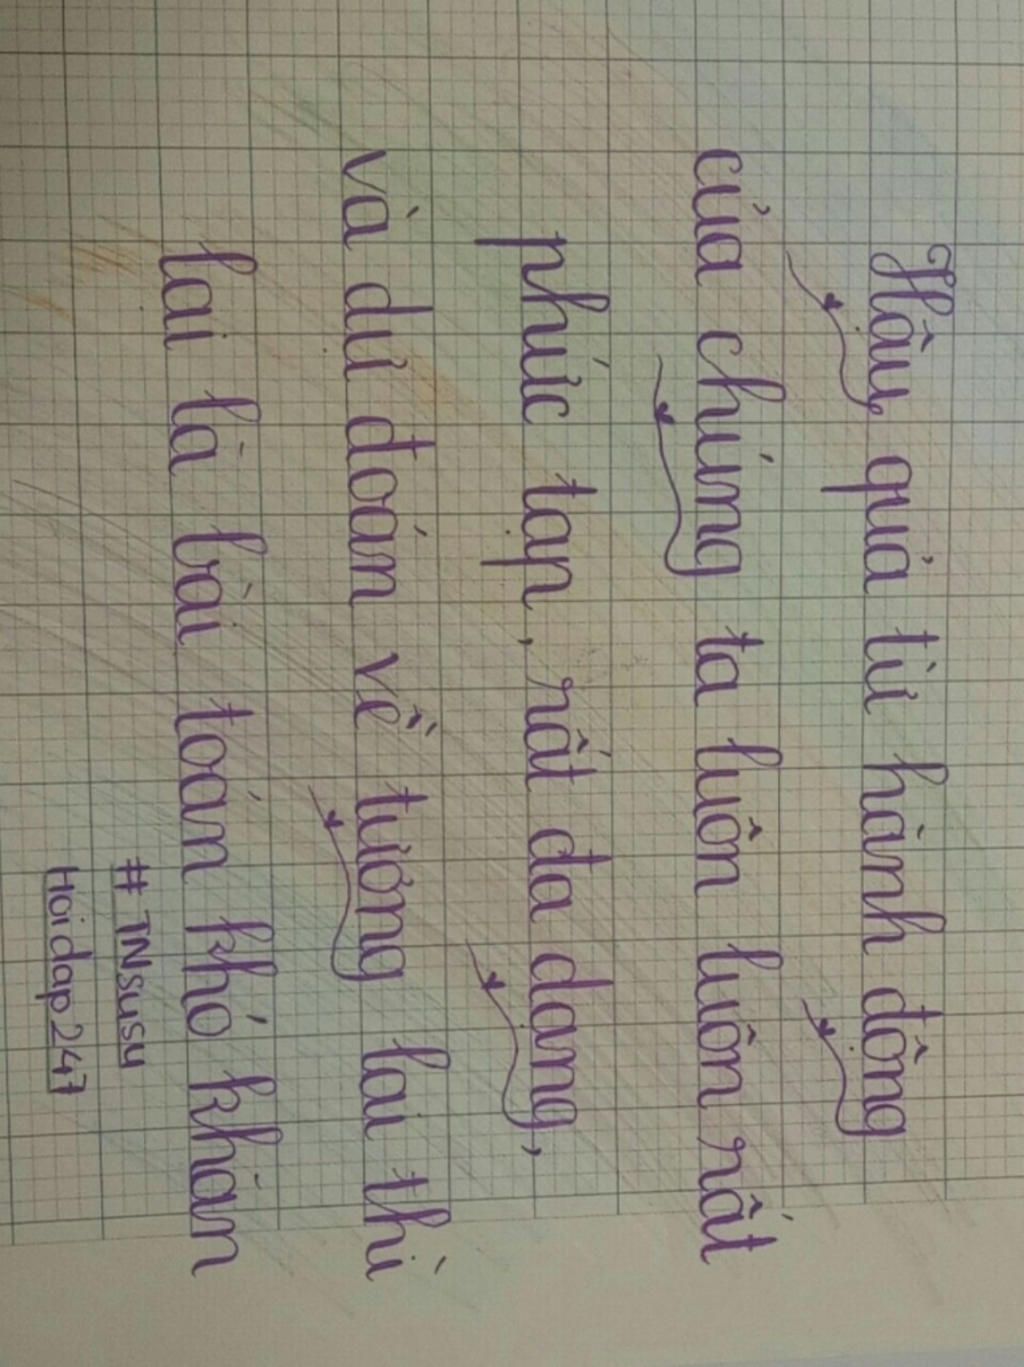 Hậu quả từ hành động
của chúng ta luôn luôn rất
phức tạp, rất đa dạng,
và dự đoán về tương lai thì
lại là bài toán khó khăn
# TNsusu
Hoidap247